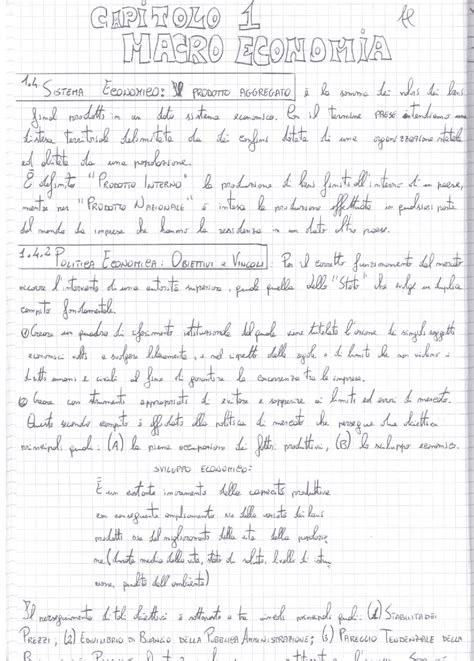 CAPITOLO 1
MACRO ECONOMIA
1.4. SISTEMA ECONOMICO: PRODOTTO AGGREGATO è la somma dei valori dei beni
finali prodotti in un dato sistema economico. Con il termine PAESE intendiamo un
sistema territoriale delimitato da dei confini dotato di una organizzazione statale
ed abitato da una popolazione.
È definito "PRODOTTO INTERNO" la produzione di beni finiti all'interno di un paese,
mentre per "PRODOTTO NAZIONALE" è intesa la produzione effettuata in qualsiasi parte
del mondo da imprese che hanno la residenza in un dato paese.
1.4.2 POLITICA ECONOMICA: OBIETTIVI e VINCOLI: Per il corretto funzionamento del mercato
occorre l'intervento di una autorità superiore, quale quella dello "Stato" che svolge un duplice
compito fondamentale.
① Creare un quadro di riferimento istituzionale del quale viene tutelata l'azione dei singoli soggetti
economici atti a svolgere liberamente, e nel rispetto delle regole e di limiti che non violino i
diritti umani e civili al fine di garantire la concorrenza tra le imprese.
② Creare con strumenti appropriati di evitare e sopperire ai limiti ed errori di mercato.
Questo secondo compito è affidato alla politica di mercato che persegue due obiettivi
principali quali: (A) la piena occupazione dei fattori produttivi, (B) lo sviluppo economico.
SVILUPPO ECONOMICO:
È un costante incremento della capacità produttiva
con conseguente ampliamento sia della varietà dei beni
prodotti sia del miglioramento della vita della popolazio
ne (durata media della vita, stato di salute, livello di istru
zione, qualità dell'ambiente)
Il perseguimento di tali obiettivi è sottomesso a tre vincoli principali quali: (1) STABILITÀ DEI
PREZZI, (2) EQUILIBRIO DI BILANCIO DELLA PUBBLICA AMMINISTRAZIONE; (3) PAREGGIO TENDENZIALE DELLA